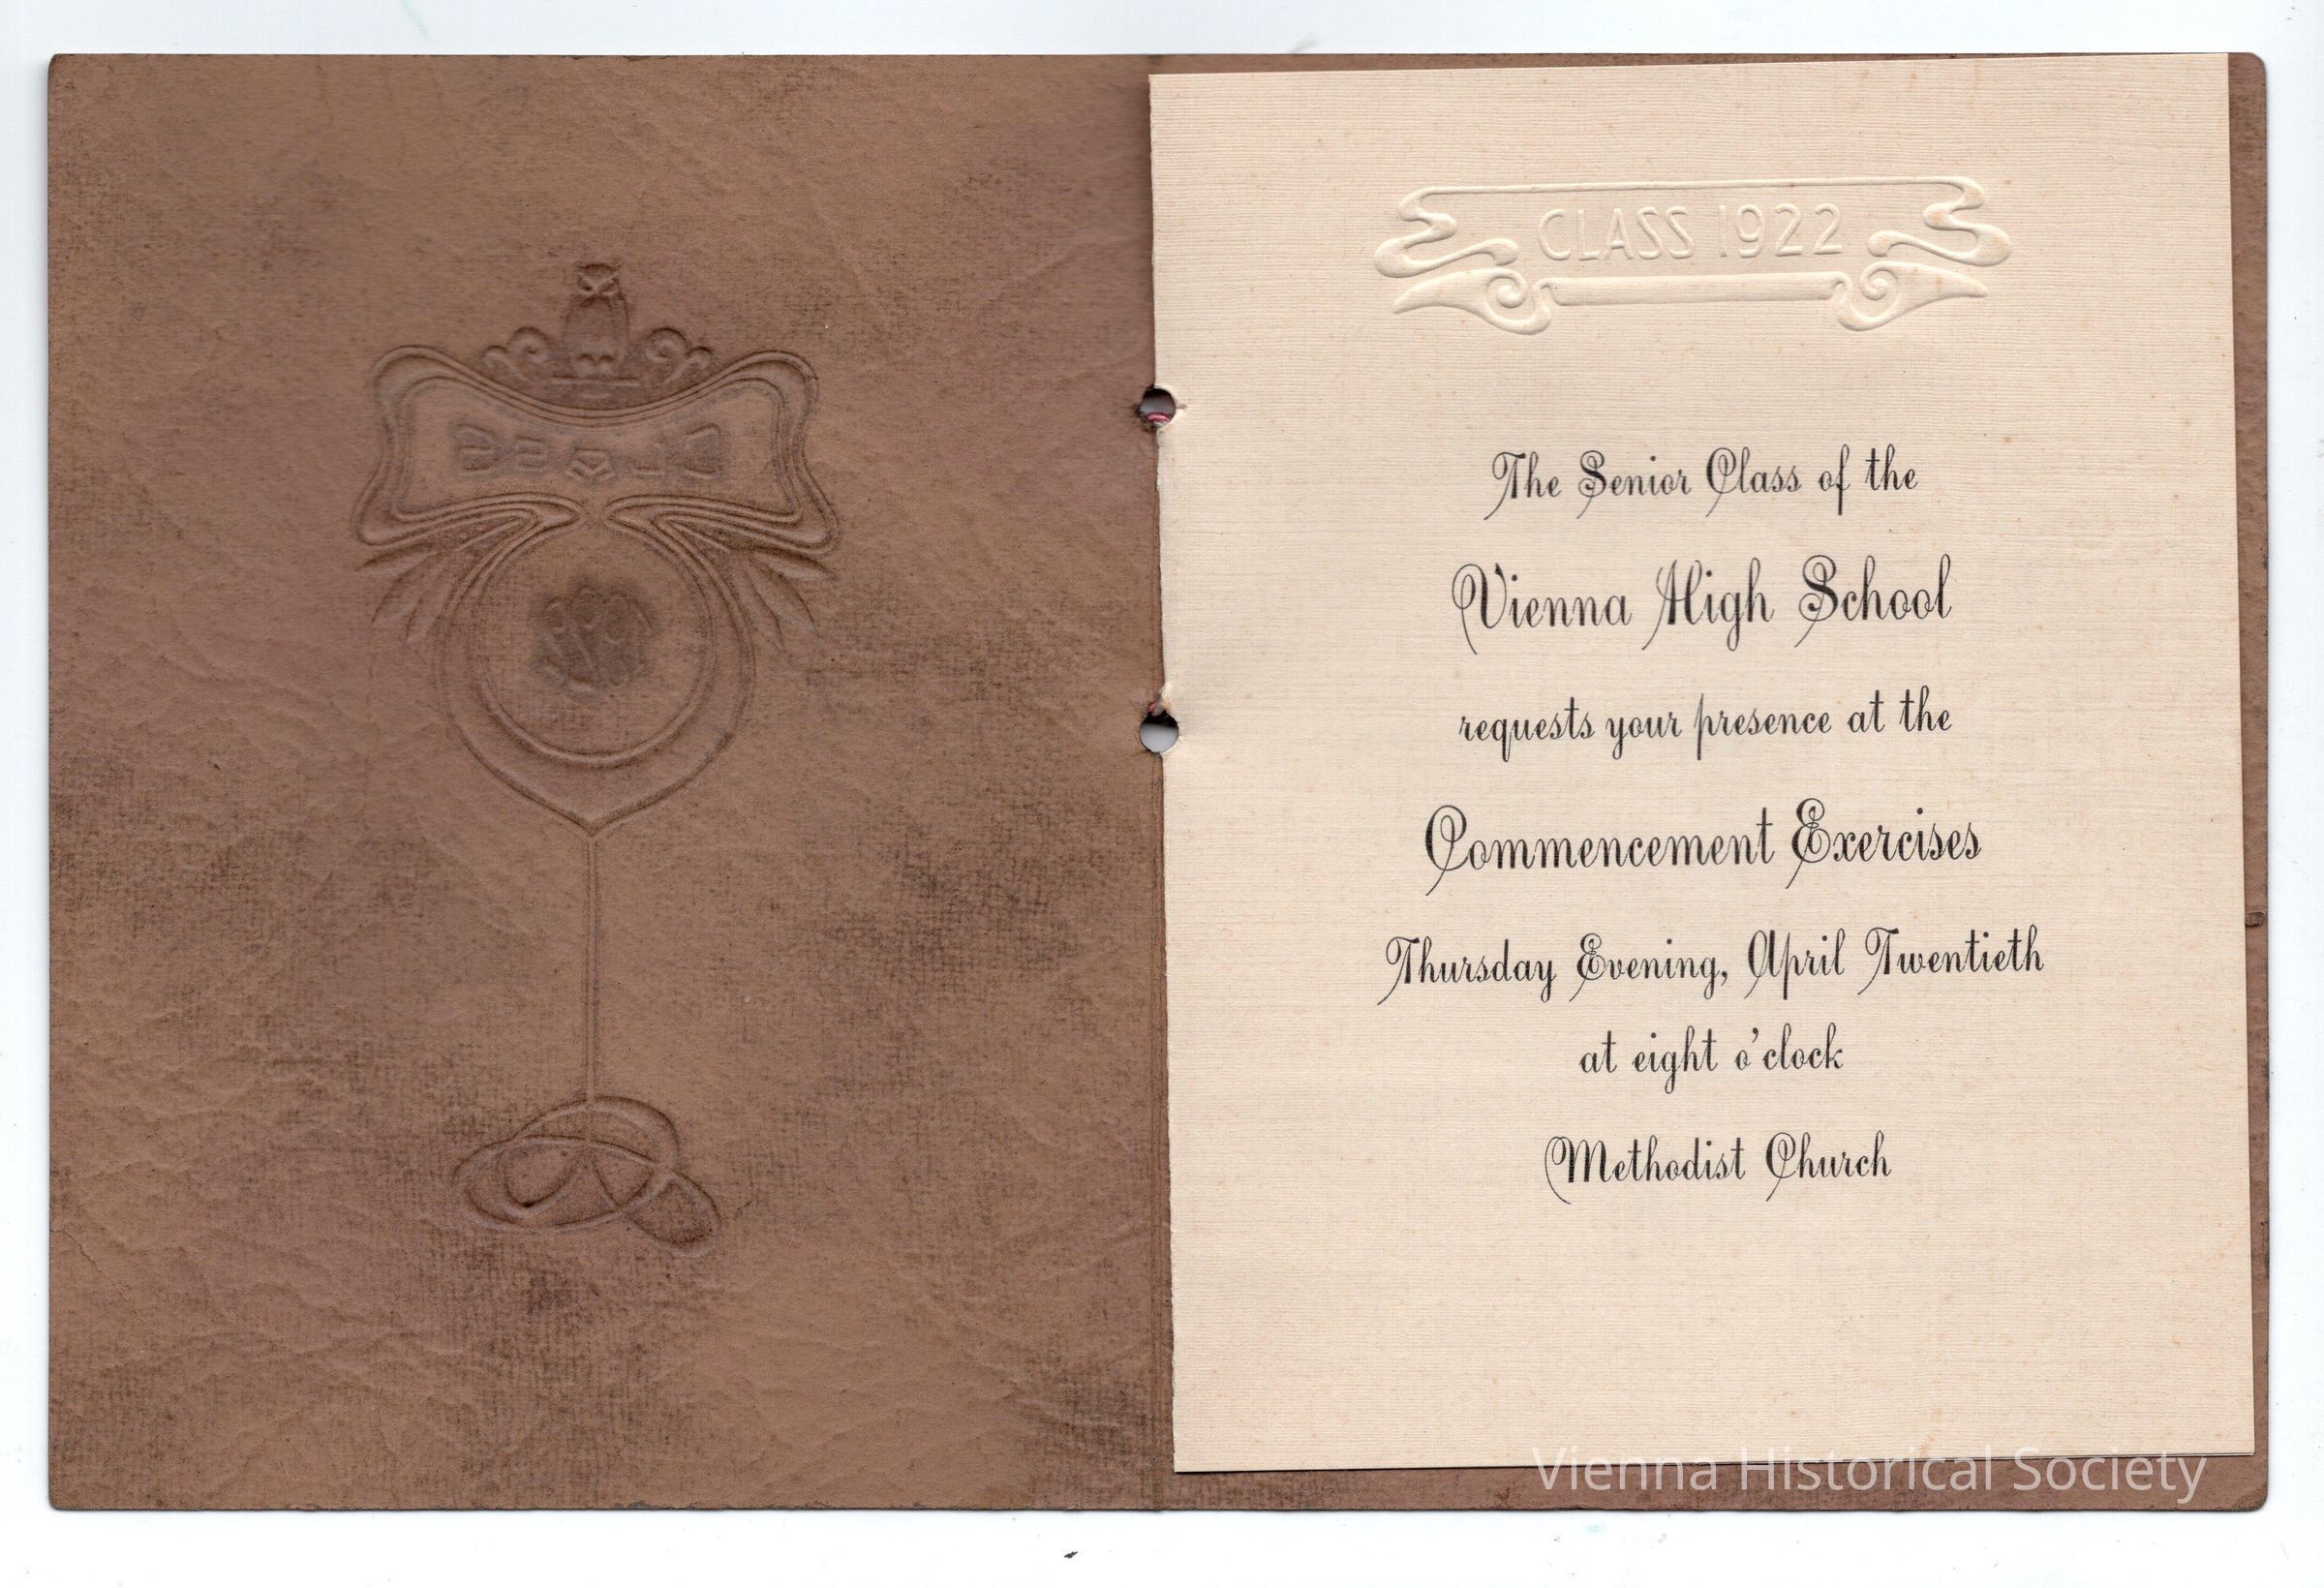 CLASS
CLASS 1922
The Senior Class of the
Vienna High School
requests your presence at the
Commencement Exercises
Thursday Evening, April Twentieth
at eight o'clock
Methodist Church
Vienna Historical Society